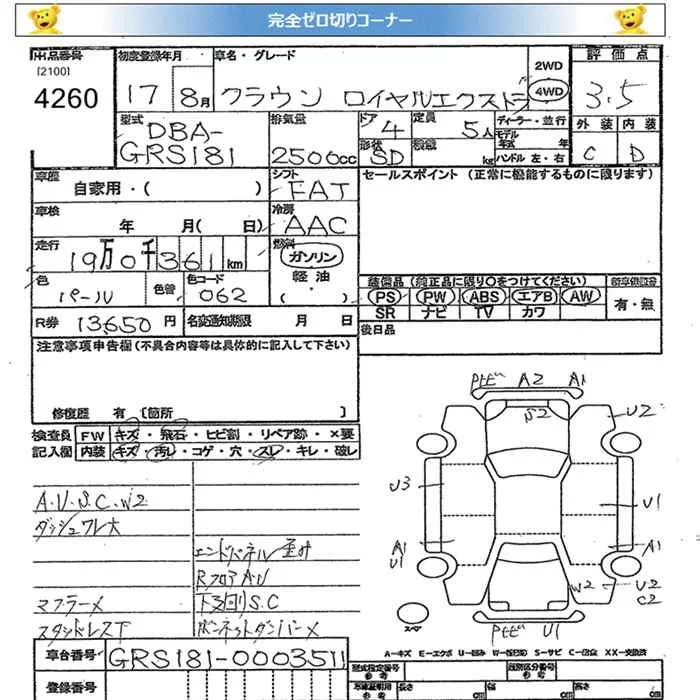 完全ゼロ切りコーナー
出品番号 初度登録年月 車名・グレード 2WD 評価点
[2100]
4260 17 8月 クラウン ロイヤルエクストラ 4WD 3.5
型式 排気量 ドア 定員 ディーラー・並行 外装 内装
DBA- 4 5人 モデル年式 年
GRS181 2500cc 形状 SD 積載 kg ハンドル 左・右 C D
車歴 自家用・( ) シフト FAT セールスポイント (正常に機能するものに限ります)
車検 年 月( 日) 冷房 AAC
走行 19万0千361km 燃料 ガソリン
軽油・( )
色 パール 色替 色コード 062
装備品 (純正品に限り○をつけてください) 新車保証書
PS PW ABS エアB AW 有・無
SR ナビ TV カワ
R券 13,650円 名変通知期限 月 日 後日品
注意事項申告欄 (不具合内容等は具体的に記入して下さい)
修復歴 有 [箇所 ]
検査員 FW キズ・飛石・ヒビ割・リペア跡・×要
記入欄 内装 キズ・汚レ・コゲ・穴・スレ・キレ・破レ
A・U・S・C・W2
ダッシュワレ大
エンドパネル歪み
RフロアAU
マフラー× 下回りS.C
スタッドレス下 ボンネットダンパー×
A2 A1
S2 U2
U3 U1
A1 A1
U1
W2 U2
C2
スペア
U1
A-キズ E-エクボ U-凹み W-補修跡 S-サビ C-腐食 XX-交換済
車台番号 GRS181-0003511
登録番号
型式指定番号 参考 類別区分番号 参考
車庫証明用 参考 長さ cm 幅 cm 高さ cm